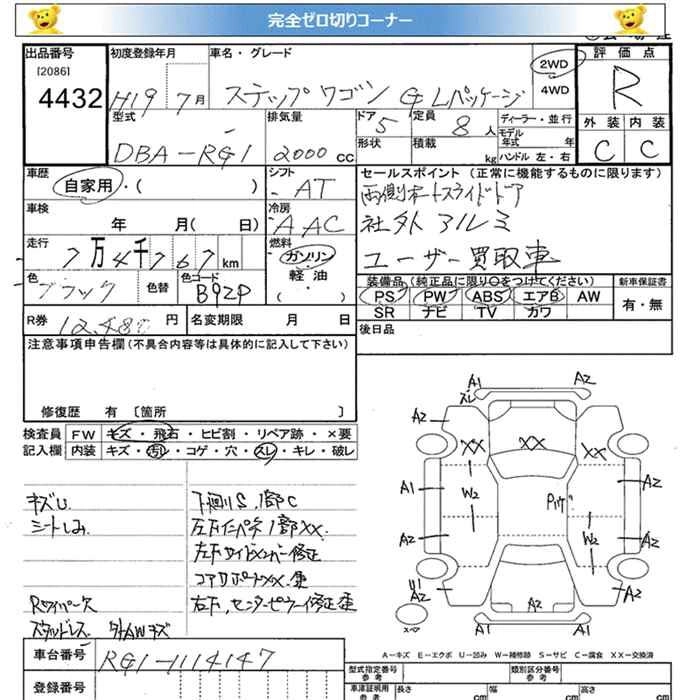 完全ゼロ切りコーナー
出品番号 初度登録年月 車名・グレード 2WD 評価点
[2086]
4432 H19 7月 ステップワゴン G Lパッケージ 4WD R
型式 排気量 ドア 定員 ディーラー・並行 外装 内装
DBA-RG1 2000 CC 5 8人 モデル年式 年 C C
形状 積載 kg ハンドル 左・右
車歴 シフト セールスポイント(正常に機能するものに限ります)
自家用・( ) AT 両側オートスライドドア
車検 冷房 社外アルミ
年 月( 日) AAC ユーザー買取車
走行 燃料
7万4千767km ガソリン
色 色替 色コード 軽油 装備品(純正品に限り○をつけてください) 新車保証書
ブラック B92P ( ・ ) PS PW ABS エアB AW 有・無
SR ナビ TV カワ
R券 円 名変期限 月 日 後日品
注意事項申告欄(不具合内容等は具体的に記入して下さい)
修復歴 有 〔箇所 〕
検査員 FW キズ・飛石・ヒビ割・リペア跡・×要
記入欄 内装 キズ・汚れ・コゲ・穴・スレ・キレ・破レ
キズU 下廻りS、1部C
シートしみ 左右インパネ1部XX
左右サイドメンバー修正
コアサポートXX歪
Rワイパー欠 右下、センターピラー修正歪
スタッドレス 外AWキズ
A1 A2
スレ
A2 XX XX XX
A1 W2 A2
A2 W2 A2
U1
A2 A2 A2
スペア A1 A1
A-キズ E-エクボ U-凹み W-補修跡 S-サビ C-腐食 XX-交換済
車台番号 RG1-1114147 型式指定番号 参考 類別区分番号 参考
登録番号 車津証明用 参考 長さ cm 幅 cm 高さ cm